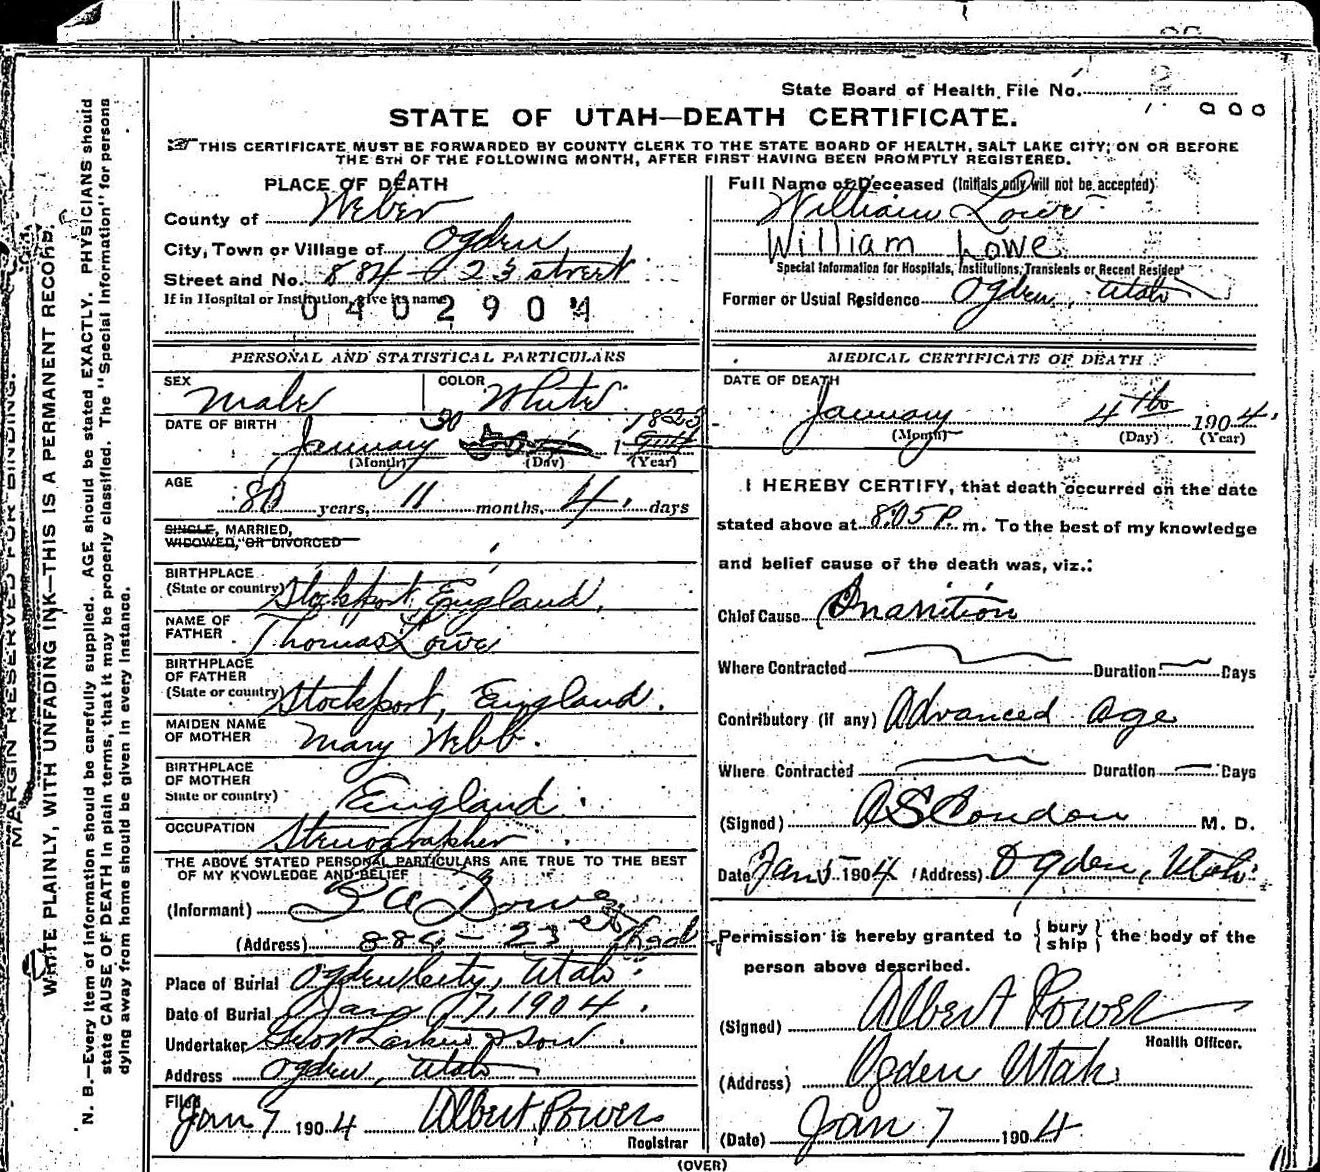 State Board of Health, File No. 2
STATE OF UTAH—DEATH CERTIFICATE.
THIS CERTIFICATE MUST BE FORWARDED BY COUNTY CLERK TO THE STATE BOARD OF HEALTH, SALT LAKE CITY, ON OR BEFORE
THE 5TH OF THE FOLLOWING MONTH, AFTER FIRST HAVING BEEN PROMPTLY REGISTERED.
MARGIN RESERVED FOR BINDING.
WRITE PLAINLY, WITH UNFADING INK—THIS IS A PERMANENT RECORD.
N. B.—Every item of information should be carefully supplied. AGE should be stated EXACTLY. PHYSICIANS should
state CAUSE OF DEATH in plain terms, that it may be properly classified. The "Special Information" for persons
dying away from home should be given in every instance.
PLACE OF DEATH
County of Weber
City, Town or Village of Ogden
Street and No. 884 - 23 street
If in Hospital or Institution, give its name
0402904
PERSONAL AND STATISTICAL PARTICULARS
SEX Male COLOR White
DATE OF BIRTH January 30 1823
(Month) (Day) (Year)
AGE 80 years, 11 months, 4 days
SINGLE, MARRIED,
WIDOWED, OR DIVORCED
BIRTHPLACE
(State or country) Stockport, England.
NAME OF
FATHER Thomas Lowe
BIRTHPLACE
OF FATHER
(State or country) Stockport, England.
MAIDEN NAME
OF MOTHER Mary Webb.
BIRTHPLACE
OF MOTHER
State or country) England.
OCCUPATION Stenographer
THE ABOVE STATED PERSONAL PARTICULARS ARE TRUE TO THE BEST
OF MY KNOWLEDGE AND BELIEF
(Informant)
(Address) 23
Place of Burial Ogden City, Utah.
Date of Burial Jany 7, 1904.
Undertaker Geo W Larkin & Son.
Address Ogden, Utah
Filed
Jan 7 1904 Albert Powers
Registrar
Full Name of Deceased (Initials only will not be accepted)
William Lowe
William Lowe
Special Information for Hospitals, Institutions, Transients or Recent Residen
Former or Usual Residence Ogden, Utah
MEDICAL CERTIFICATE OF DEATH
DATE OF DEATH
January 4th 1904.
(Month) (Day) (Year)
I HEREBY CERTIFY, that death occurred on the date
stated above at 8.05 P. m. To the best of my knowledge
and belief cause of the death was, viz.:
Chief Cause Inanition
Where Contracted Duration Days
Contributory (if any) Advanced Age
Where Contracted Duration Days
(Signed) A S Condon M. D.
Date Jan 5 1904 (Address) Ogden, Utah.
Permission is hereby granted to { bury ship } the body of the
person above described.
(Signed) Albert Powers
Health Officer.
(Address) Ogden Utah
(Date) Jan 7 1904
(OVER)